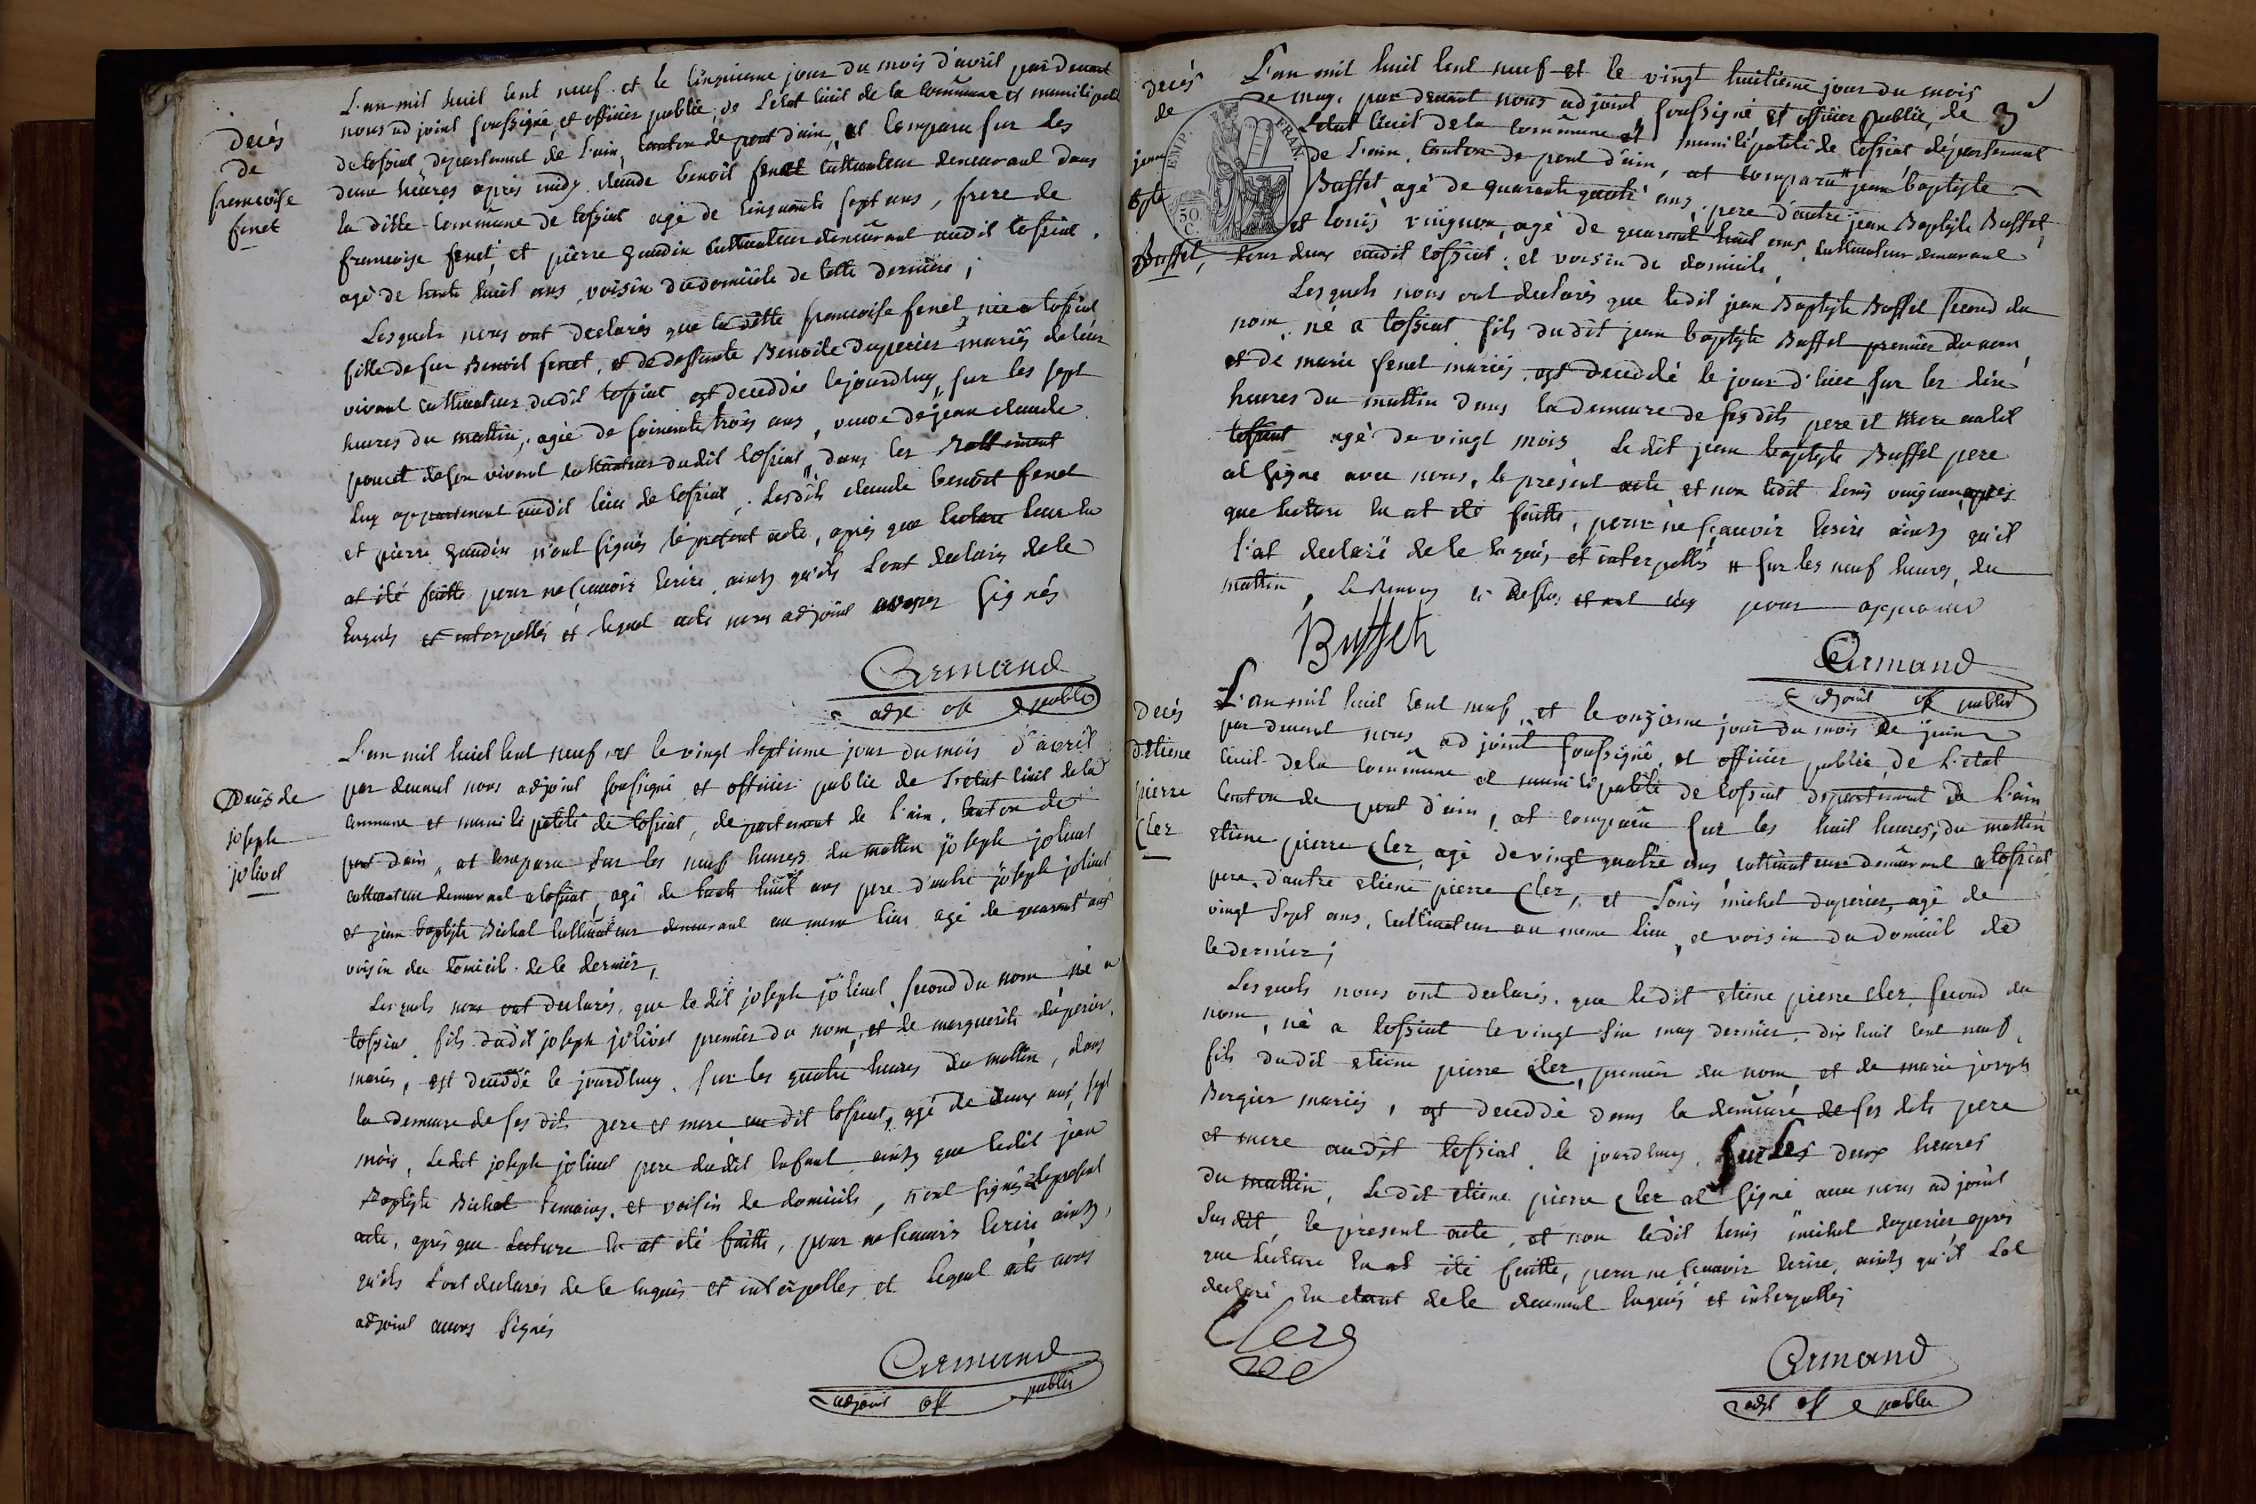 decès
de
francoise
fenet
L'an mil huit cent neuf et le cinquieme jour du mois d'avril par devant
nous adjoint soussigné, et officier public, de L'etat civil de la commune et municipalité
de tossiat departement de L'ain, canton de pont d'ain, at comparu sur les
deux heures après midy claude benoit fenet cultivateur demeurant dans
la ditte commune de tossiat agé de cinquante sept ans, frere de
francoise fenet, et pierre gaudin cultivateur demeurant audit tossiat,
agé de trente huit ans, voisin du domicile de cette derniere;
Lesquels nous ont declarés que la ditte francoise fenet, née a tossiat
fille de feu Benoit fenet, et de deffunte Benoite duperier mariés de leur
vivant cultivateur dudit tossiat est deceddée le jourdhuy, sur les sept
heures du mattin, agée de soixante trois ans, veuve de jean claude
poncet de son vivant cultivateur dudit tossiat, dans les Battiment
luy appartenant audit lieu de tossiat, Lesdits claude benoit fenet
et pierre gaudin n'ont signés le present acte, après que lecture leur en
at eté faitte pour ne scavoir ecrire, ainsy qu'ils l'ont declarés de ce
enquis et interpellés et lequel acte nous adjoint avons signés
Armand
adjt off public
Decès de
joseph
jolivet
L'an mil huit cent neuf, et le vingt septieme jour du mois d'avril
par devant nous adjoint soussigné et officier public de L'etat civil de la
commune et municipalité de tossiat, departement de l'ain, canton de
pont dain, at comparu sur les neuf heures du mattin joseph jolivet
cultivateur demeurant a tossiat, agé de trente huit ans pere d'autre joseph jolivet
et jean baptiste Bichat cultivateur demeurant au meme lieu agé de quarant ans
voisin du domicile de ce dernier,
Lesquels nous ont declarés, que le dit joseph jolivet, second du nom né a
tossiat, fils dudit joseph jolivet premier du nom, et de marguerite duperier,
mariés, est deceddé le jourdhuy, sur les quatre heures du mattin, dans
la demeure de ses dits pere et mere audit tossiat, agé de deux ans, sept
mois, Ledit joseph jolivet pere dudit enfant ainsy que ledit jean
Baptiste Bichat temoins, et voisin de domicile, n'ont signés le present
acte, après que Lecture en at eté faitte, pour ne scavoir ecrire ainsy,
qu'ils l'ont declarés de ce enquis et interpelles et lequel acte nous
adjoint avons signés
Armand
adjoint off public
3
decès
de
jean
Bpte
Buffet,
EMP. FRAN.
50
C.
L'an mil huit cent neuf et le vingt huitieme jour du mois
de may, par devant nous adjoint soussigné et officier public, de
L'etat civil de la commune et municipalité de tossiat departement
de L'ain, canton de pont d'ain, at comparu # jean baptiste
Buffet agé de quarante quatre ans, pere d'autre jean Baptiste Buffet,
et Louis vuignon, agé de quarant huit ans, cultivateur demeurant
tous deux audit tossiat; et voisin de domicile,
Lesquels nous ont declarés que ledit jean Baptiste Buffet second du
nom, né a tossiat fils dudit jean baptiste Buffet premier du nom,
et de marie fenet mariés, est deceddé le jour d'hier sur les dix
heures du mattin dans la demeure de ses dits pere et mere audit
tossiat agé de vingt mois Le dit jean baptiste Buffet pere
at signé avec nous, le present acte, et non ledit Louis vuignon après
que lecture en at eté faitte, pour ne scavoir ecrire ainsy qu'il
l'at declaré de ce enquis, et interpellés # sur les neuf heures, du
mattin, Le Renvoy ci dessus pour approuvé
Buffet
Armand
adjoint off public
Decès
d'etiene
pierre
Clez
L'an mil huit cent neuf, et le onzieme jour du mois de juin
par devant nous adjoint soussigné, et officier public, de L'etat
civil de la commune et municipalité de tossiat departement de L'ain
canton de pont d'ain, at comparu sur les huit heures, du mattin
etiene pierre Clez, agé de vingt quatre ans, cultivateur demeurant a tossiat,
pere, d'autre etiene pierre Clez, et Louis michel duperier, agé de
vingt sept ans, cultivateur au meme lieu, et voisin du domicil de
ce dernier;
Lesquels nous ont declarés, que ledit etiene pierre Clez, second du
nom, né a tossiat le vingt six may dernier, dix huit cent neuf,
fils dudit etiene pierre Clez, premier du nom, et de marie joseph
Bergier mariés, est deceddé dans la demeure de ses dits pere
et mere audit tossiat, le jourdhuy, sur les deux heures
du mattin, Ledit etiene pierre Clez at signé avec nous adjoint
susdit, le present acte, et non ledit Louis michel duperier après
que Lecture en at eté faitte, pour ne scavoir ecrire, ainsy qu'il L'at
declaré en etant de ce enquis et interpellés
Clez
Armand
adjt off public